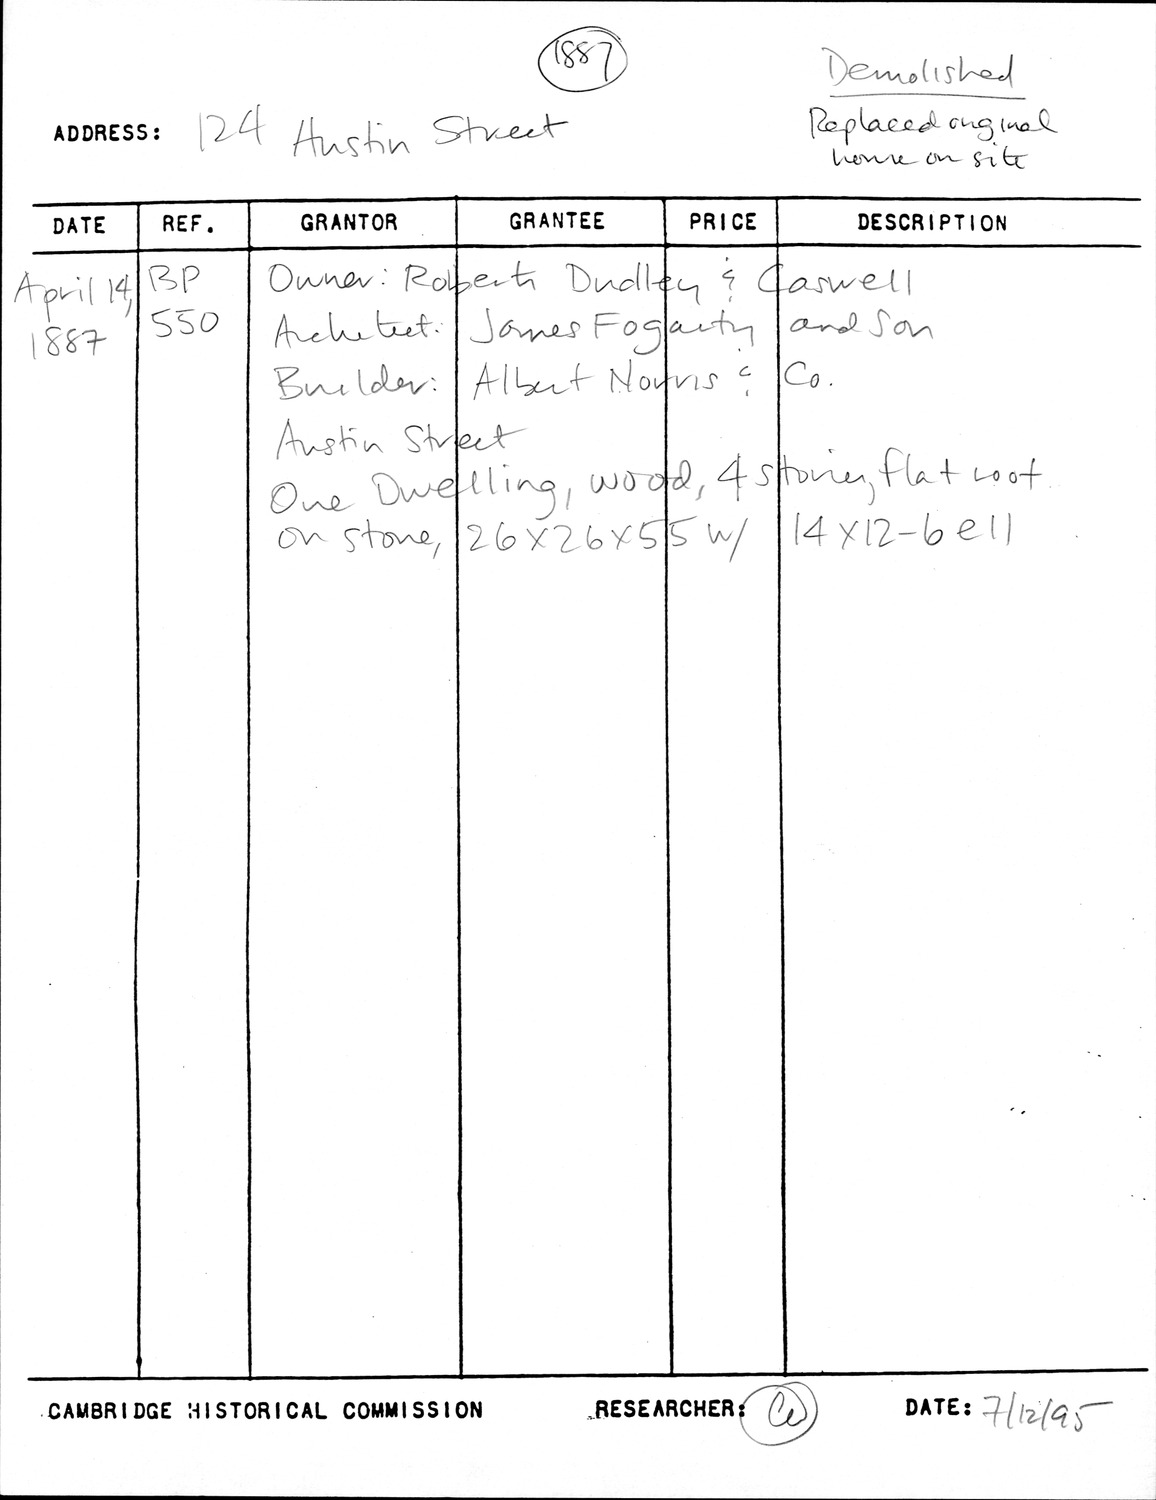 1887
Demolished
Replaced original
house on site
ADDRESS: 124 Austin Street
DATE REF. GRANTOR GRANTEE PRICE DESCRIPTION
April 14, BP Owner: Roberts Dudley & Caswell
1887 550 Architect: James Fogarty and Son
Builder: Albert Norris & Co.
Austin Street
One Dwelling, wood, 4 stories, flat roof
on stone, 26x26x55 w/ 14x12-6 ell
CAMBRIDGE HISTORICAL COMMISSION RESEARCHER: DATE: 7/12/95